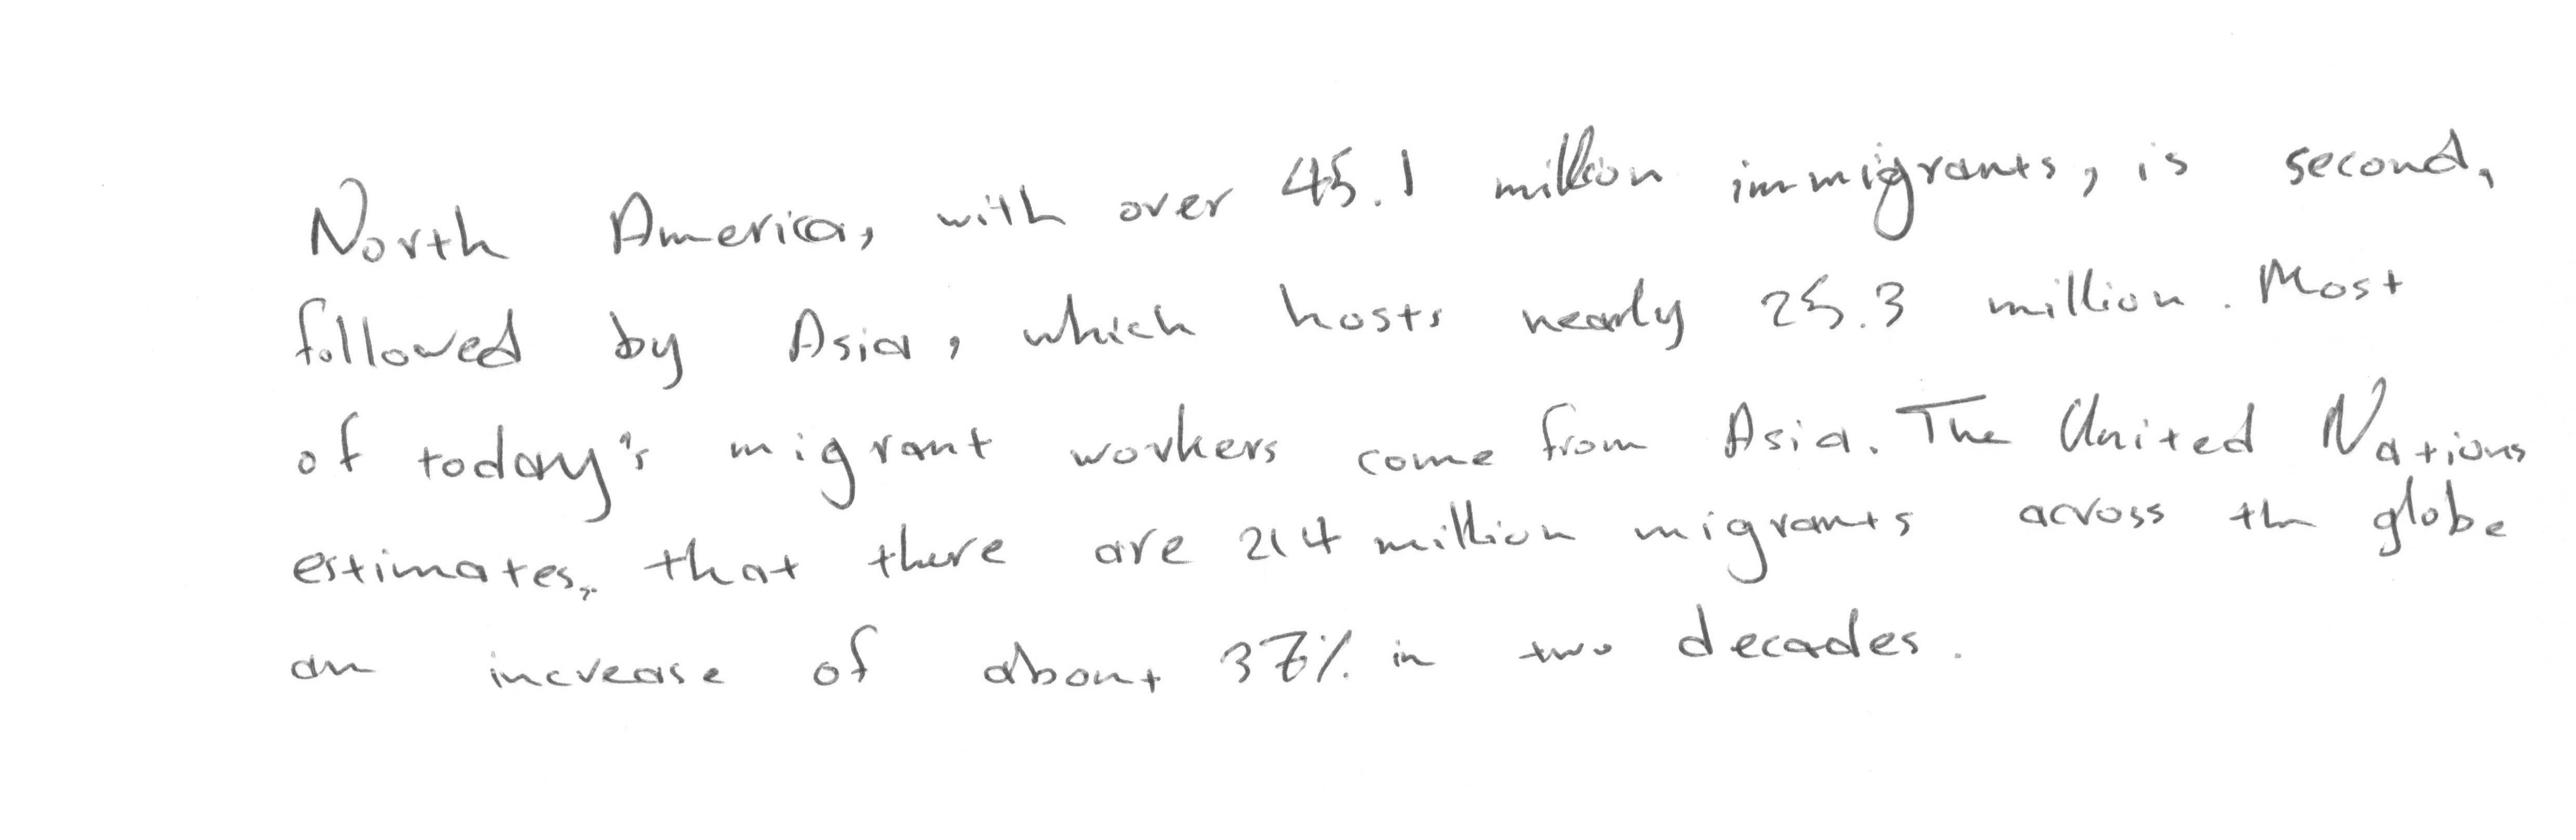 North America, with over 45.1 million immigrants, is second,
followed by Asia, which hosts nearly 25.3 million. Most
of today's migrant workers come from Asia. The United Nations
estimates, that there are 214 million migrants across the globe
an increase of about 37% in two decades.